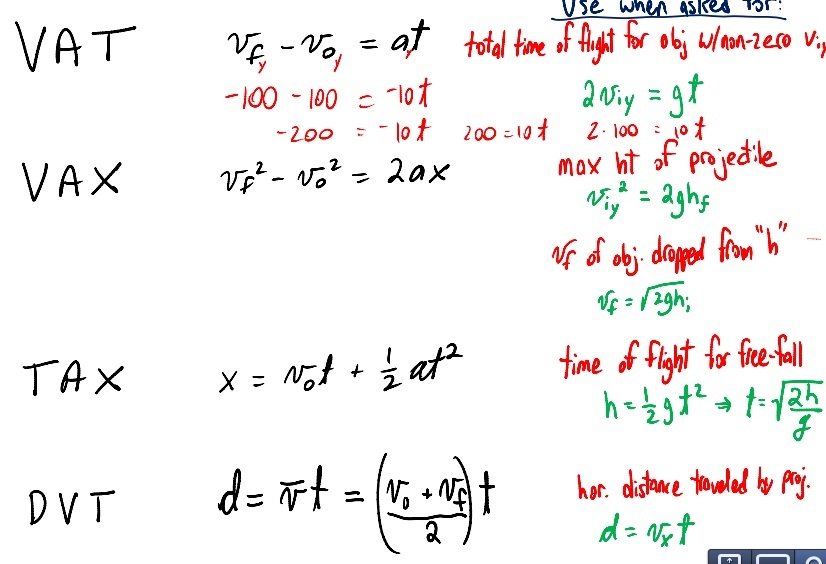 Use when asked for:
VAT v_fy - v_oy = at total time of flight for obj w/non-zero v_iy
-100 - 100 = -10t 2v_iy = gt
-200 = -10t 200 = 10t 2·100 = 10t
VAX v_f² - v_o² = 2ax max ht of projectile
v_iy² = 2gh_f
v_f of obj. dropped from "h"
v_f = √2gh_i
TAX x = v_o t + 1/2 at² time of flight for free-fall
h = 1/2 gt² ⇒ t = √2h/g
DVT d = v̄t = (v_o + v_f / 2) t hor. distance traveled by proj.
d = v_x t